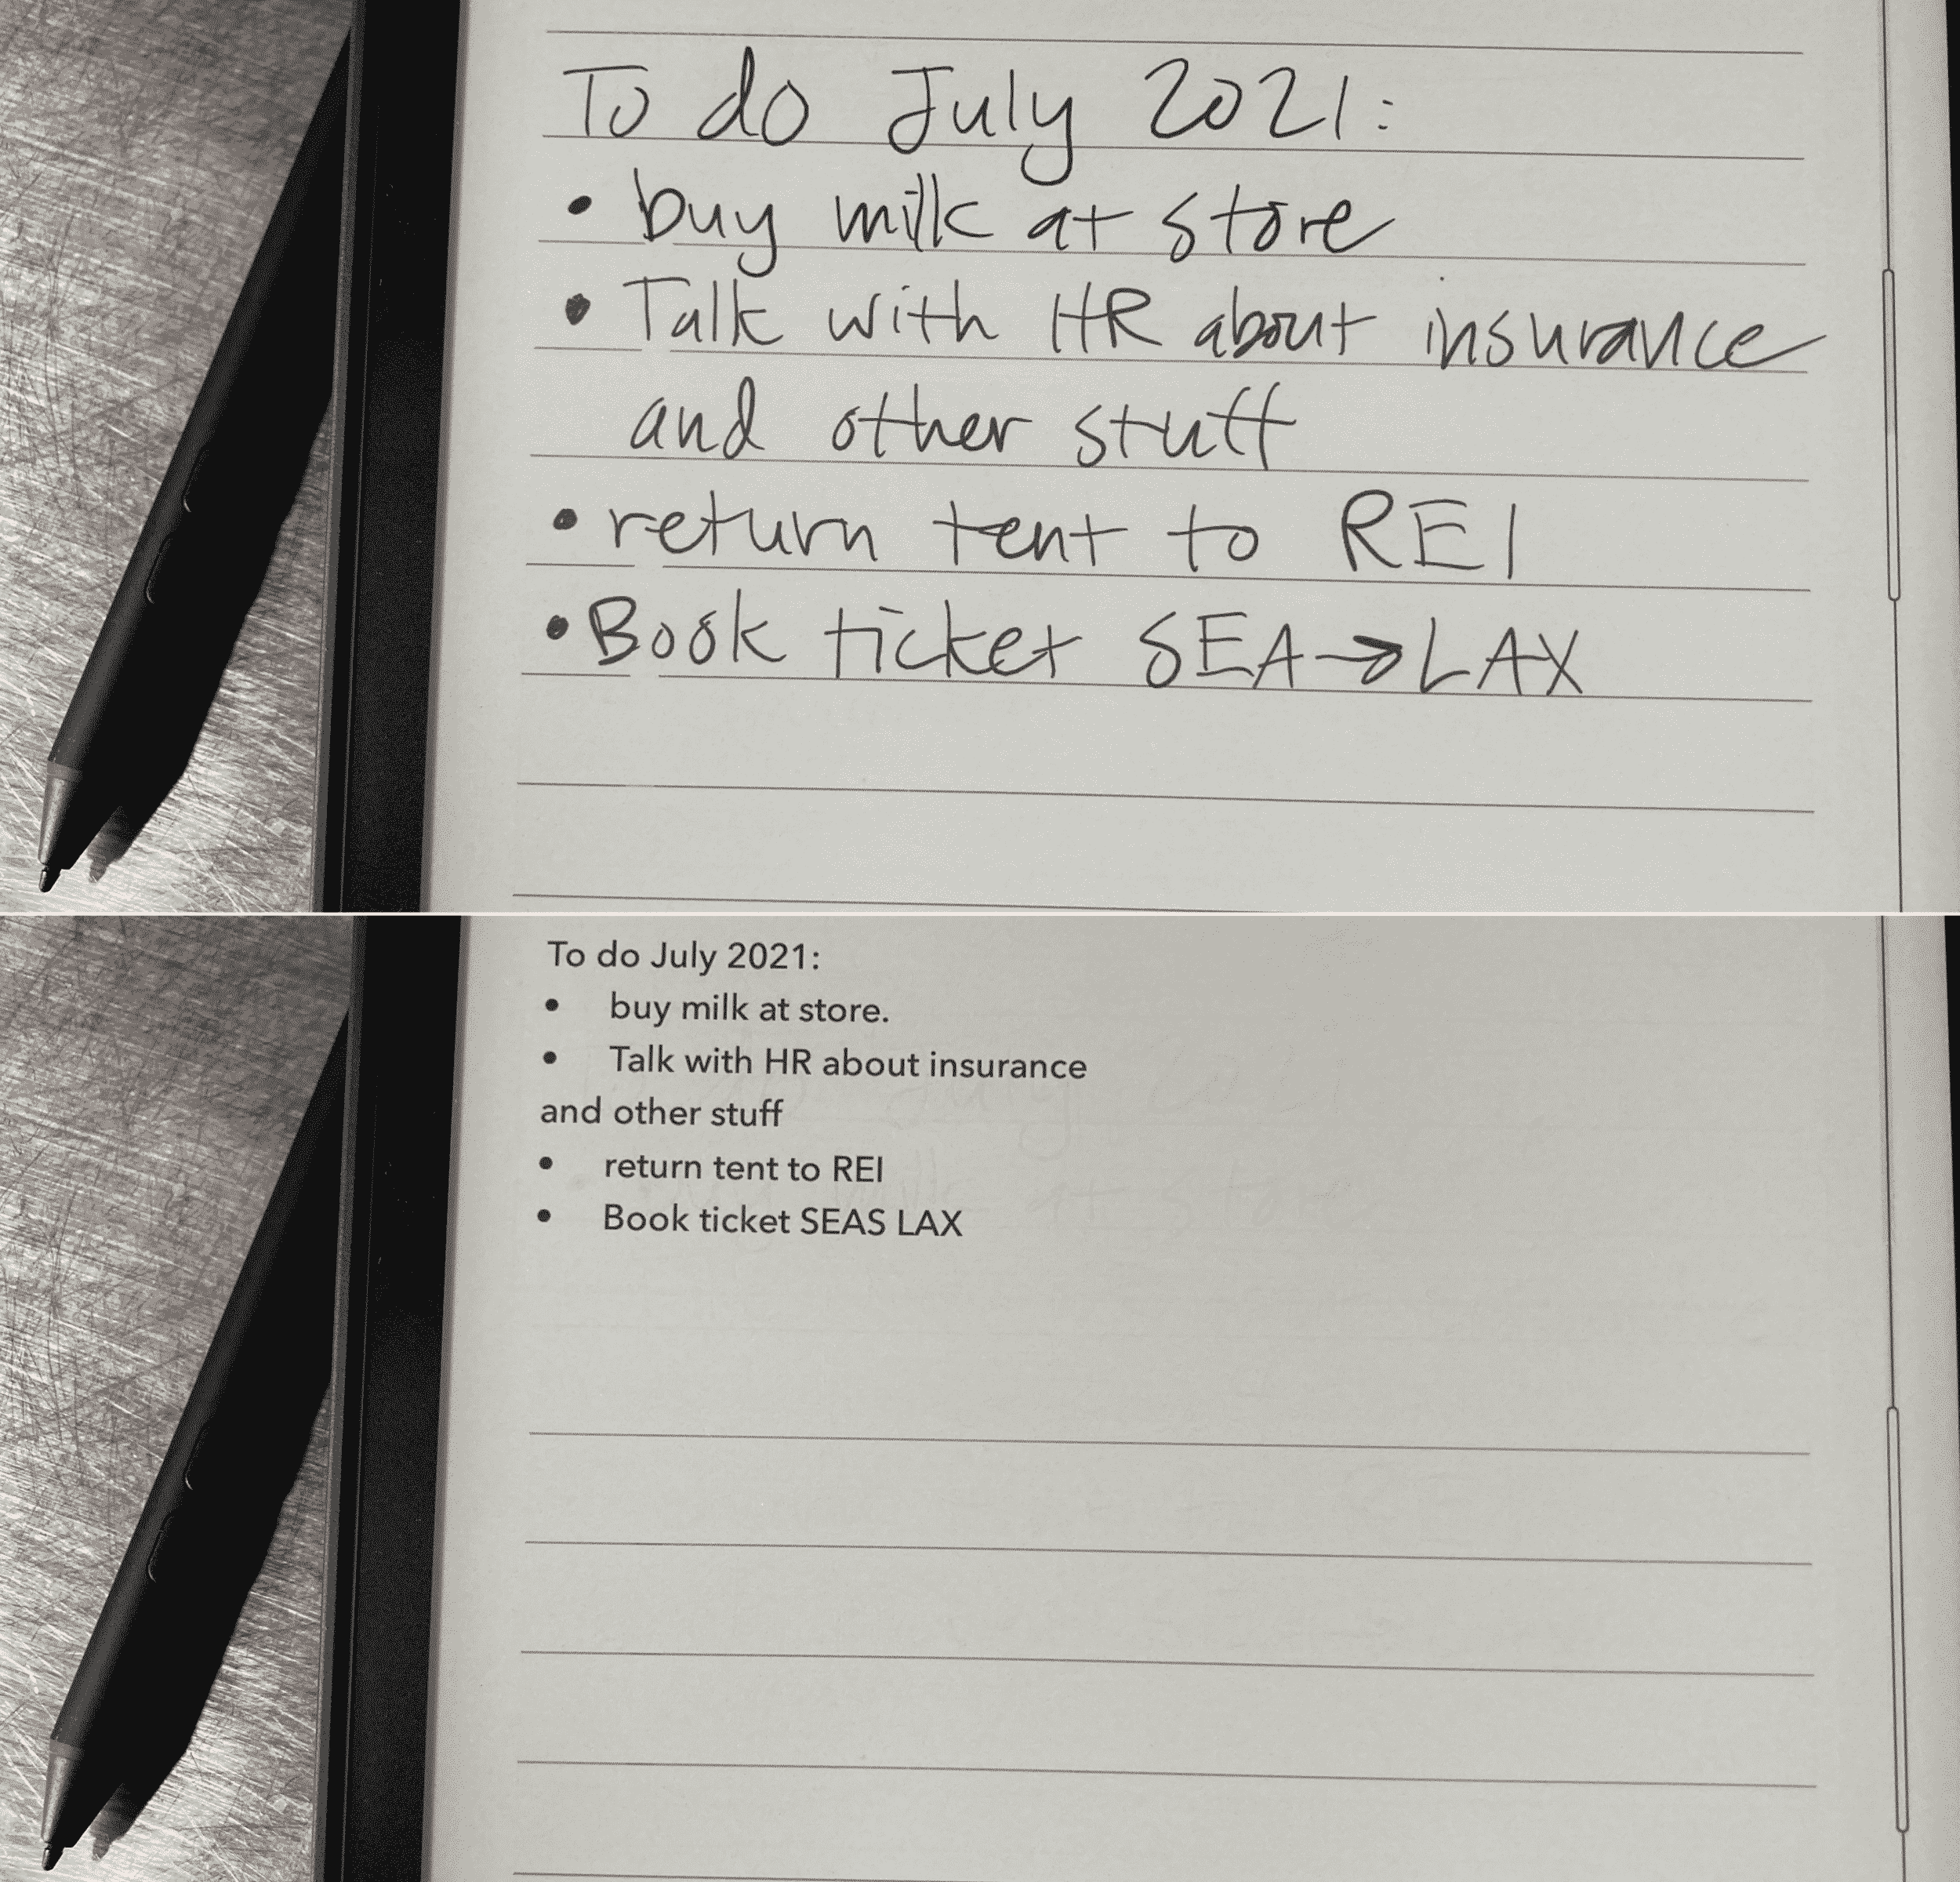 To do July 2021:
• buy milk at store
• Talk with HR about insurance
and other stuff
• return tent to REI
• Book ticket SEA→LAX
To do July 2021:
• buy milk at store.
• Talk with HR about insurance
and other stuff
• return tent to REI
• Book ticket SEAS LAX